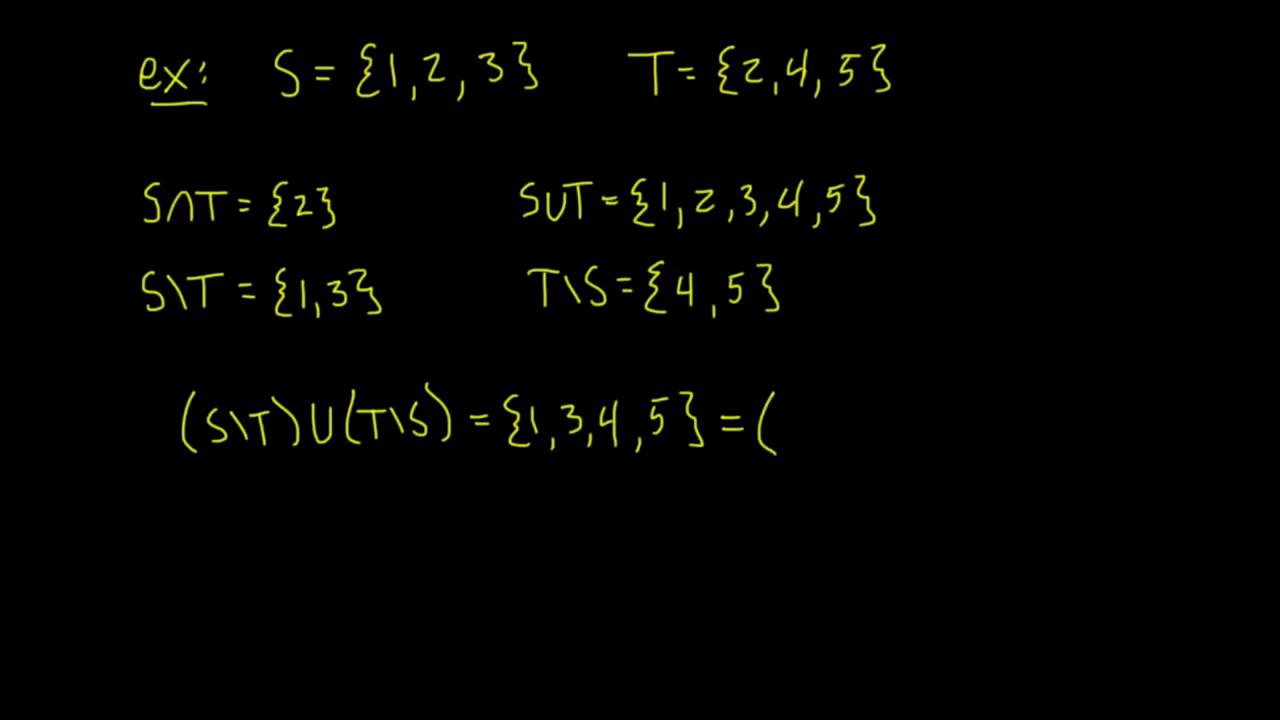 ex: S = {1, 2, 3} T = {2, 4, 5}
S∩T = {2} S∪T = {1, 2, 3, 4, 5}
S\T = {1, 3} T\S = {4, 5}
(S\T) ∪ (T\S) = {1, 3, 4, 5} = (